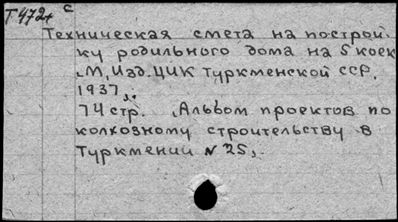 Т472+ с
Техническая смета на построй
ку родильного дома на 5 коек
М, Изд. ЦИК Туркменской ССР.
1937,.
74 стр. Альбом проектов по
колхозному строительству в
Туркмении № 25,.